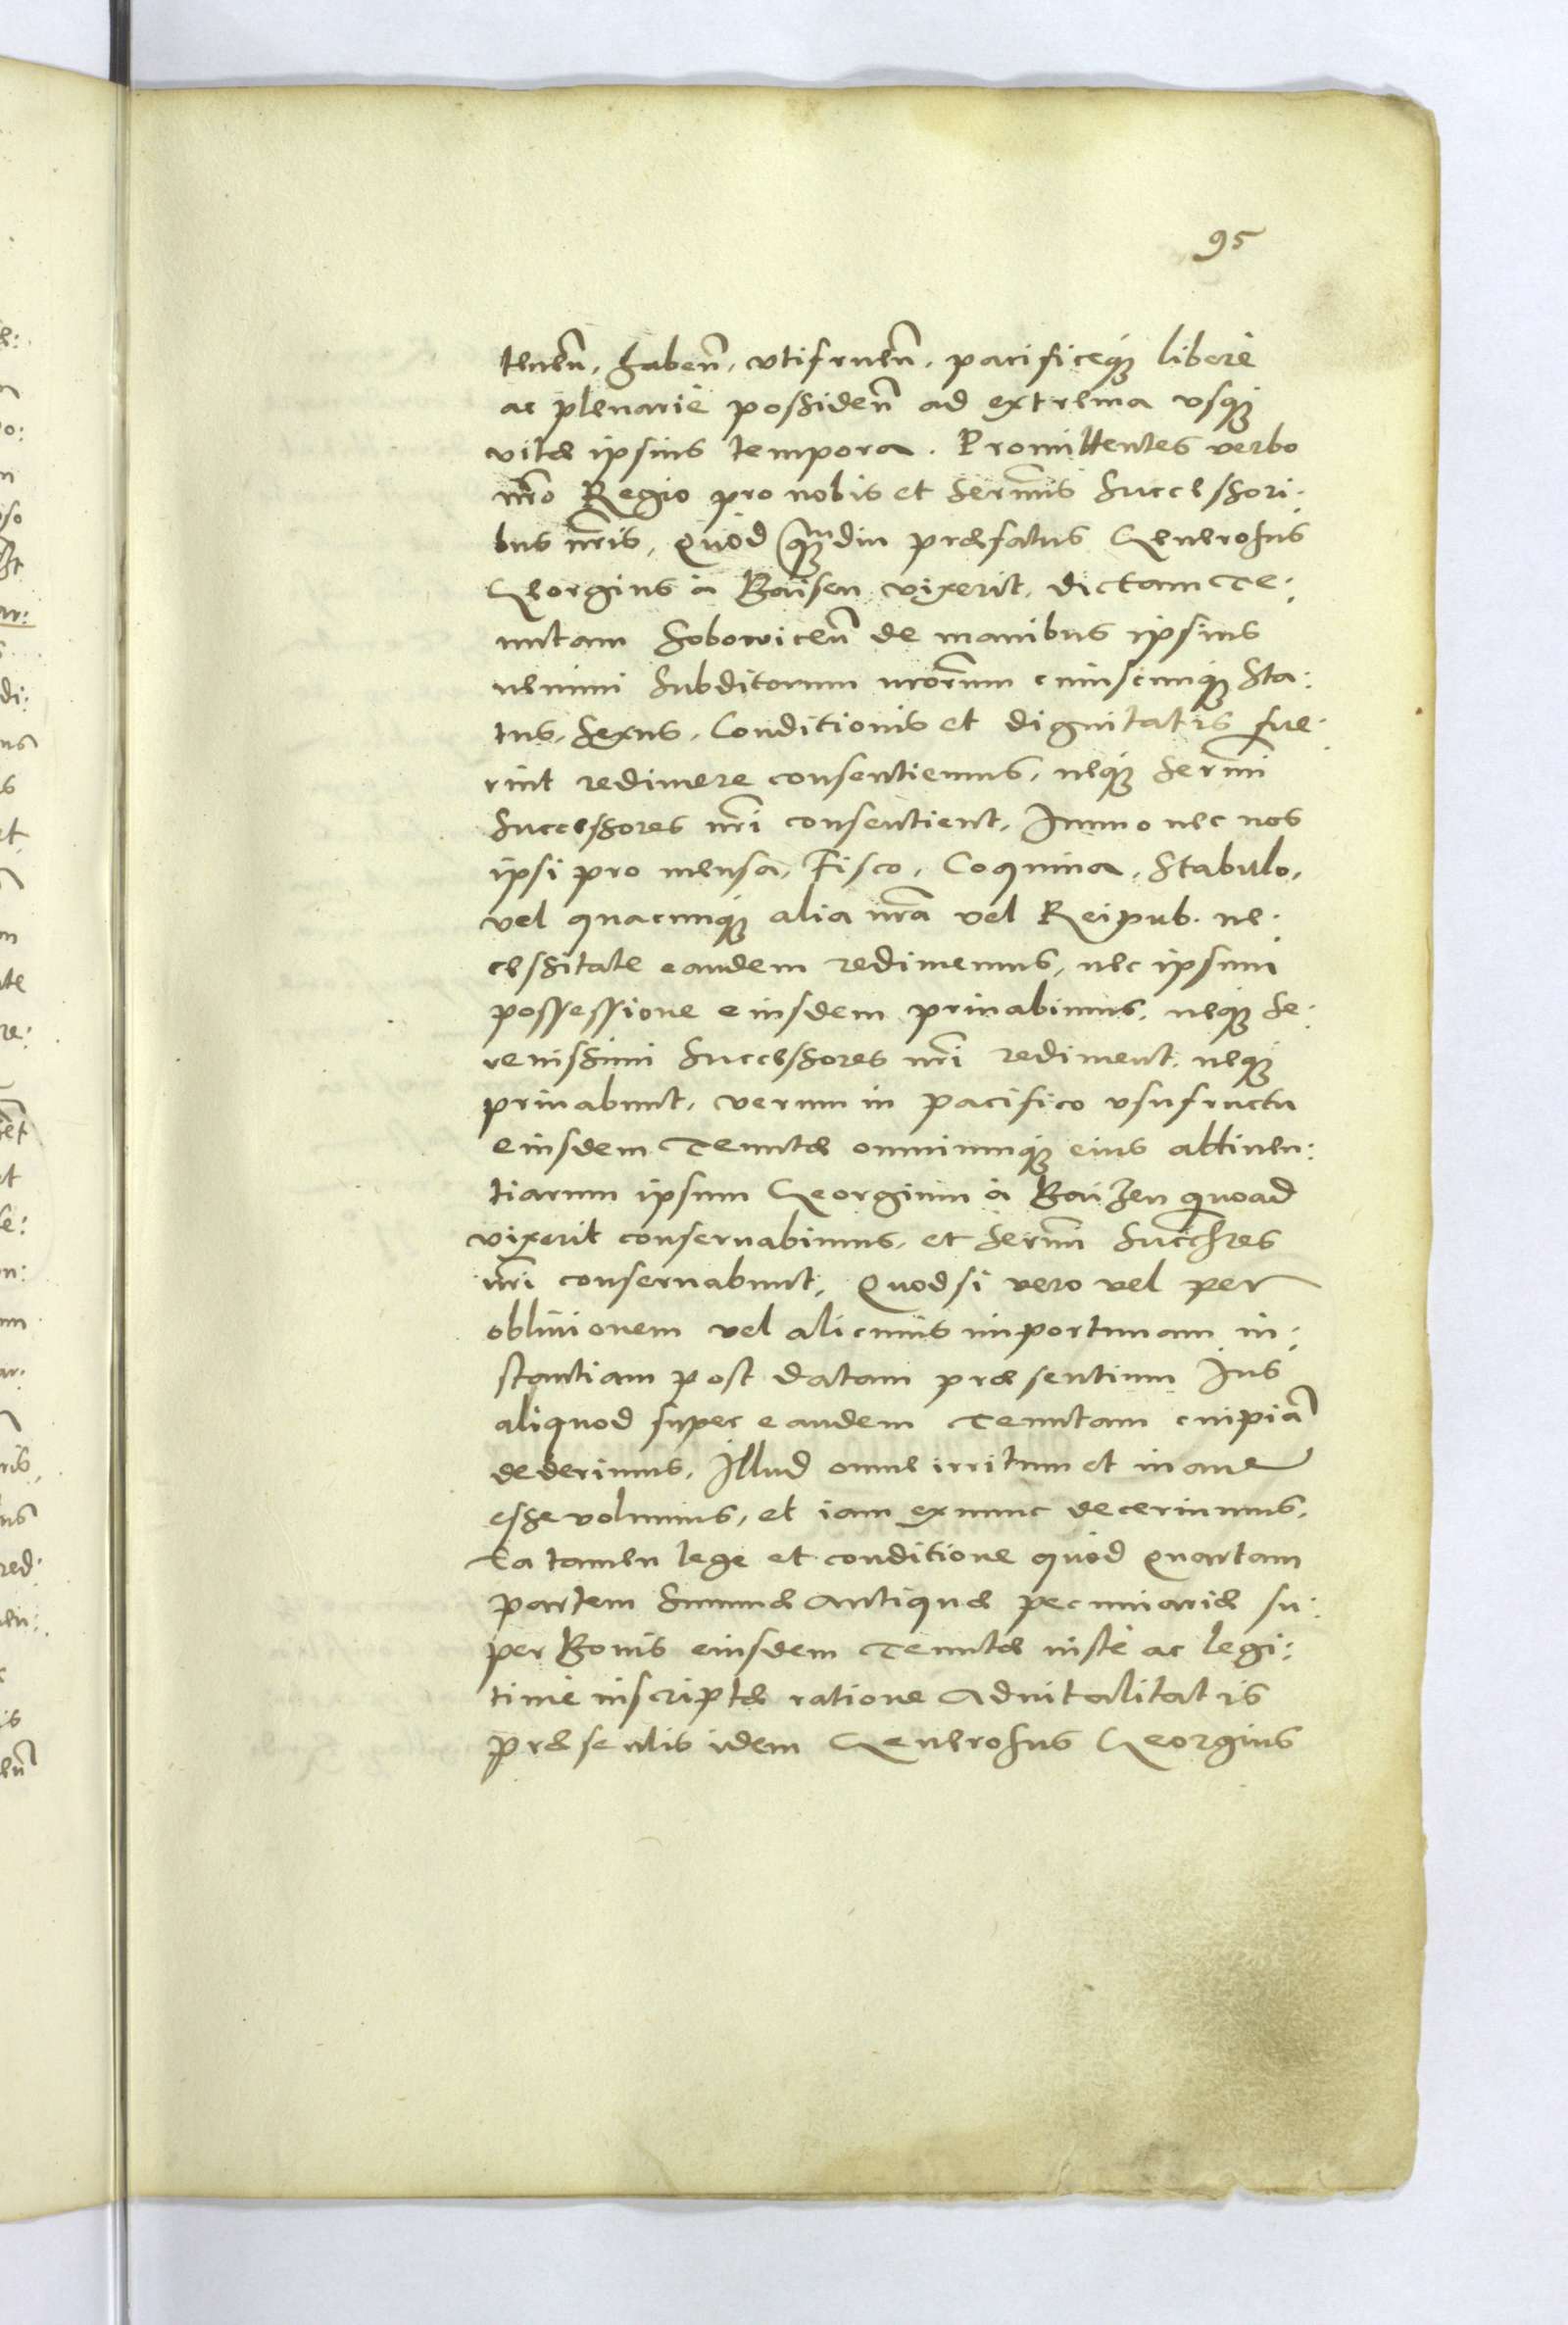 95
tenen̄, haben̄, vtifruen̄, pacificeq₃ liberè
ac plenariè possiden̄ ad extrema vsq₃
vitæ ipsius tempora. Promittentes verbo
nr̄o Regio pro nobis et Serm̄is Successori:
bus nr̄is, Quòd quādiu præfatus Generosus
Georgius à Baisen vixerit, dictam Te:
nutam Sobowicen̄ de manibus ipsius
nemini Subditorum nrōrum cuiuscunq₃ Sta:
tus, Sexus, Conditionis et dignitatis fue:
rint redimere consentiemus, neq₃ Serm̄i
Successores nr̄i consentient, Immo nec nos
ipsi pro mensa, Fisco, Coquina, Stabulo,
vel quacunq₃ alia nr̄a vel Reipub. ne:
cessitate eandem redimemus, nec ipsum
possessione eiusdem priuabimus, neq₃ Se:
renissimi Successores nr̄i rediment, neq₃
priuabunt, verum in pacifico vsufructu
eiusdem Tenutæ omniumq₃ eius attinen:
tiarum ipsum Georgium à Baizen quoad
vixerit conseruabimus, et Serm̄i Succ̄sres
nr̄i conseruabunt, Quodsi vero vel per
obliuionem vel alicuius importunam in:
stantiam post datam præsentium Ius
aliquod super eandem Tenutam cuipiā
dederimus, Illud omne irritum et inane
esse volumus, et iam exnunc decernimus,
Ea tamen lege et conditione quòd Quartam
partem Summæ antiquæ pecuniariæ su:
per Bonis eiusdem Tenutæ iustè ac legi:
timè inscriptæ ratione Aduitalitatis
præsentis idem Generosus Georgius